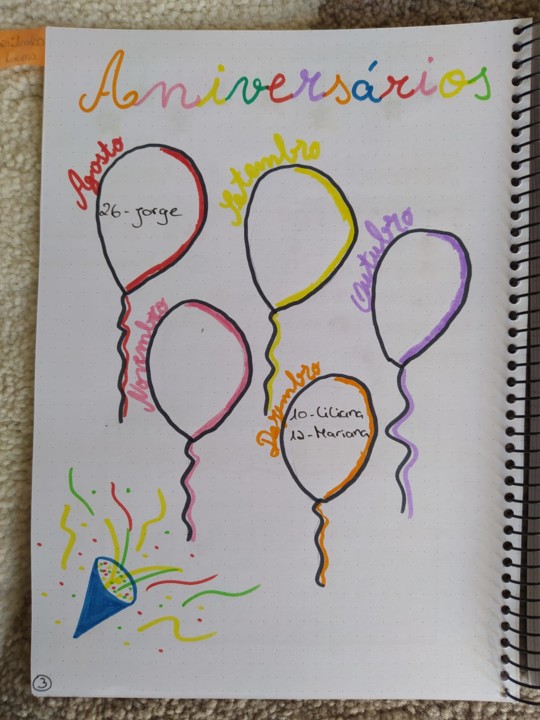 Aniversários
Agosto
26-Jorge
Setembro
Outubro
Novembro
Dezembro
10-Liliana
12-Mariana
3